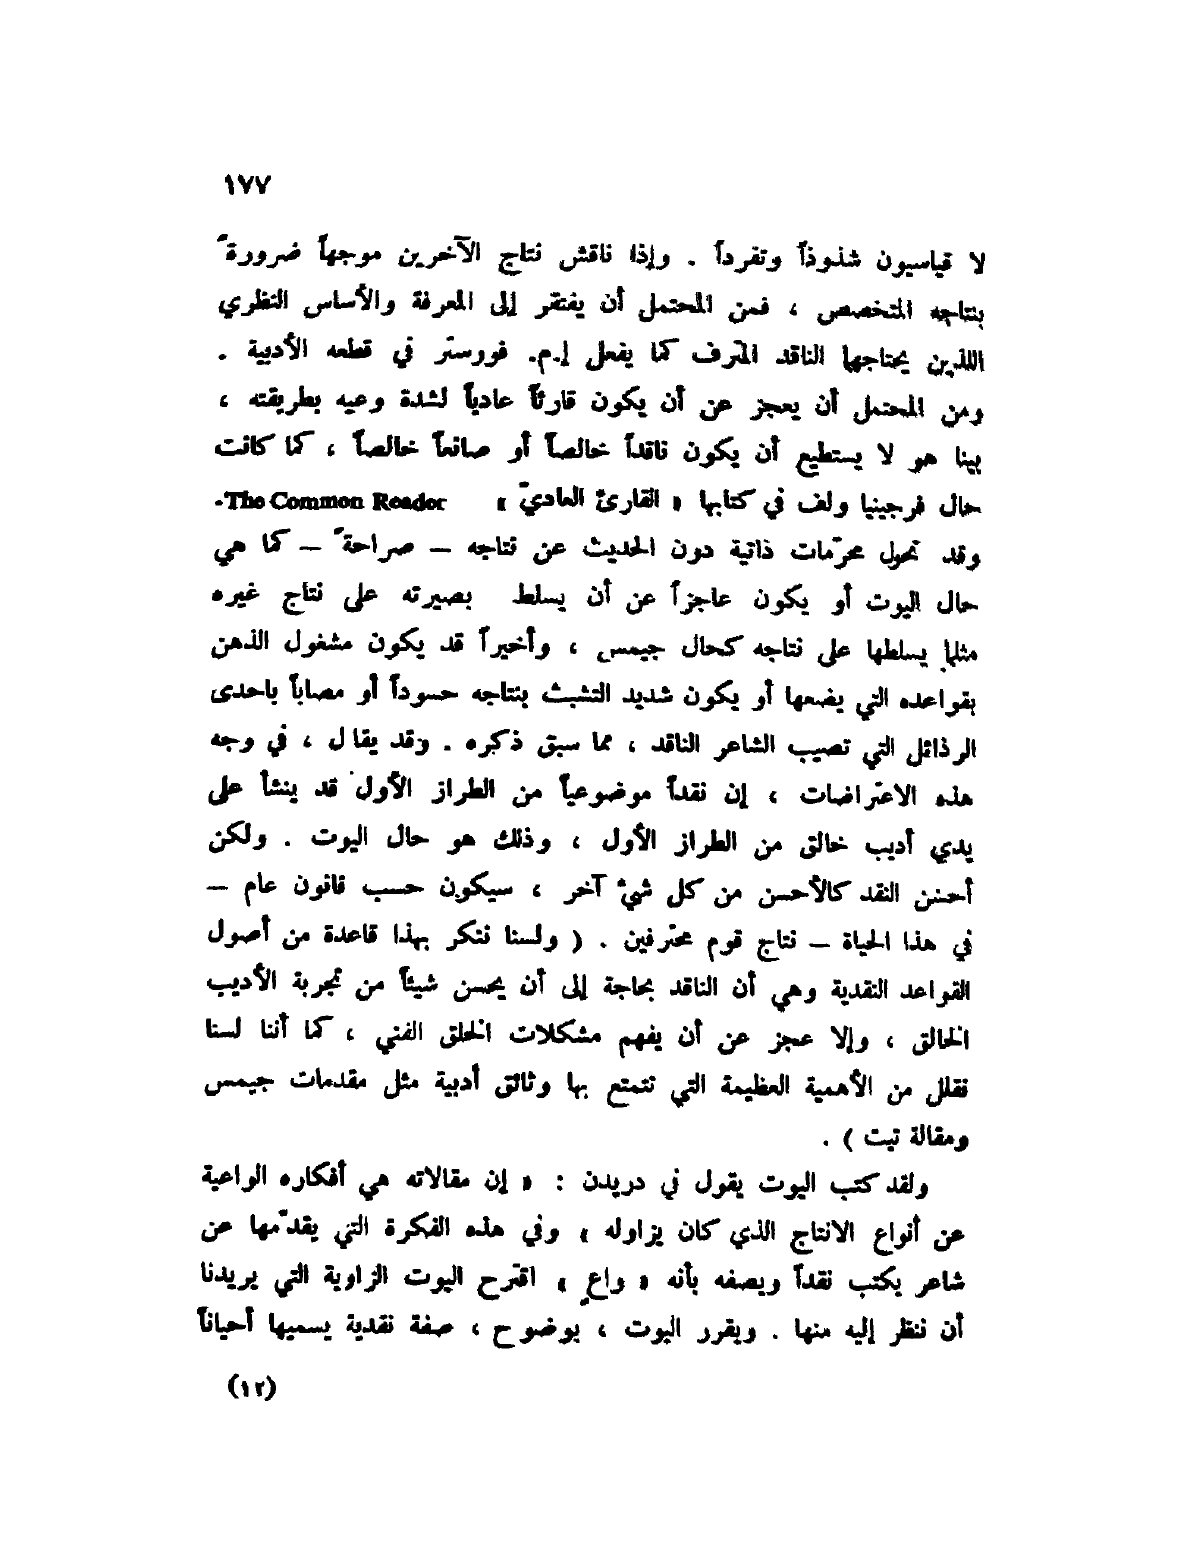 ١٧٧
لا قياسيون شذوذاً وتفرداً . وإذا ناقش نتاج الآخرين موجهاً ضرورةً
بنتاجه المتخصص ، فمن المحتمل أن يفتقر إلى المعرفة والأساس النظري
اللذين يحتاجها الناقد المترف كما يفعل إ.م. فورستر في قطعه الأدبية .
ومن المحتمل أن يعجز عن أن يكون قارئاً عادياً لشدة وعيه بطريقته ،
بينا هو لا يستطيع أن يكون ناقداً خالصاً أو صانعاً خالصاً ، كما كانت
حال فرجينيا ولف في كتابها « القارئ العاديّ » The Common Reader-
وقد تحول محرّمات ذاتية دون الحديث عن نتاجه – صراحةً – كما هي
حال اليوت أو يكون عاجزاً عن أن يسلط بصيرته على نتاج غيره
مثلما يسلطها على نتاجه كحال جيمس ، وأخيراً قد يكون مشغول الذهن
بقواعده التي يضعها أو يكون شديد التشبث بنتاجه حسوداً أو مصاباً باحدى
الرذائل التي تصيب الشاعر الناقد ، مما سبق ذكره . وقد يقال ، في وجه
هذه الاعتراضات ، إن نقداً موضوعياً من الطراز الأول قد ينشأ على
يدي أديب خالق من الطراز الأول ، وذلك هو حال اليوت . ولكن
أحسن النقد كالأحسن من كل شيء آخر ، سيكون حسب قانون عام –
في هذا الحياة – نتاج قوم محترفين . ( ولسنا ننكر بهذا قاعدة من أصول
القواعد النقدية وهي أن الناقد بحاجة إلى أن يحسن شيئاً من تجربة الأديب
الخالق ، وإلا عجز عن أن يفهم مشكلات الخلق الفني ، كما أننا لسنا
نقلل من الأهمية العظيمة التي تتمتع بها وثائق أدبية مثل مقدمات جيمس
ومقالة تيت ) .
ولقد كتب اليوت يقول في دريدن : « إن مقالاته هي أفكاره الواعية
عن أنواع الانتاج الذي كان يزاوله » وفي هذه الفكرة التي يقدّمها عن
شاعر يكتب نقداً ويصفه بأنه « واعٍ » اقترح اليوت الزاوية التي يريدنا
أن ننظر إليه منها . ويقرر اليوت ، بوضوح ، صفة نقدية يسميها أحياناً
(١٢)